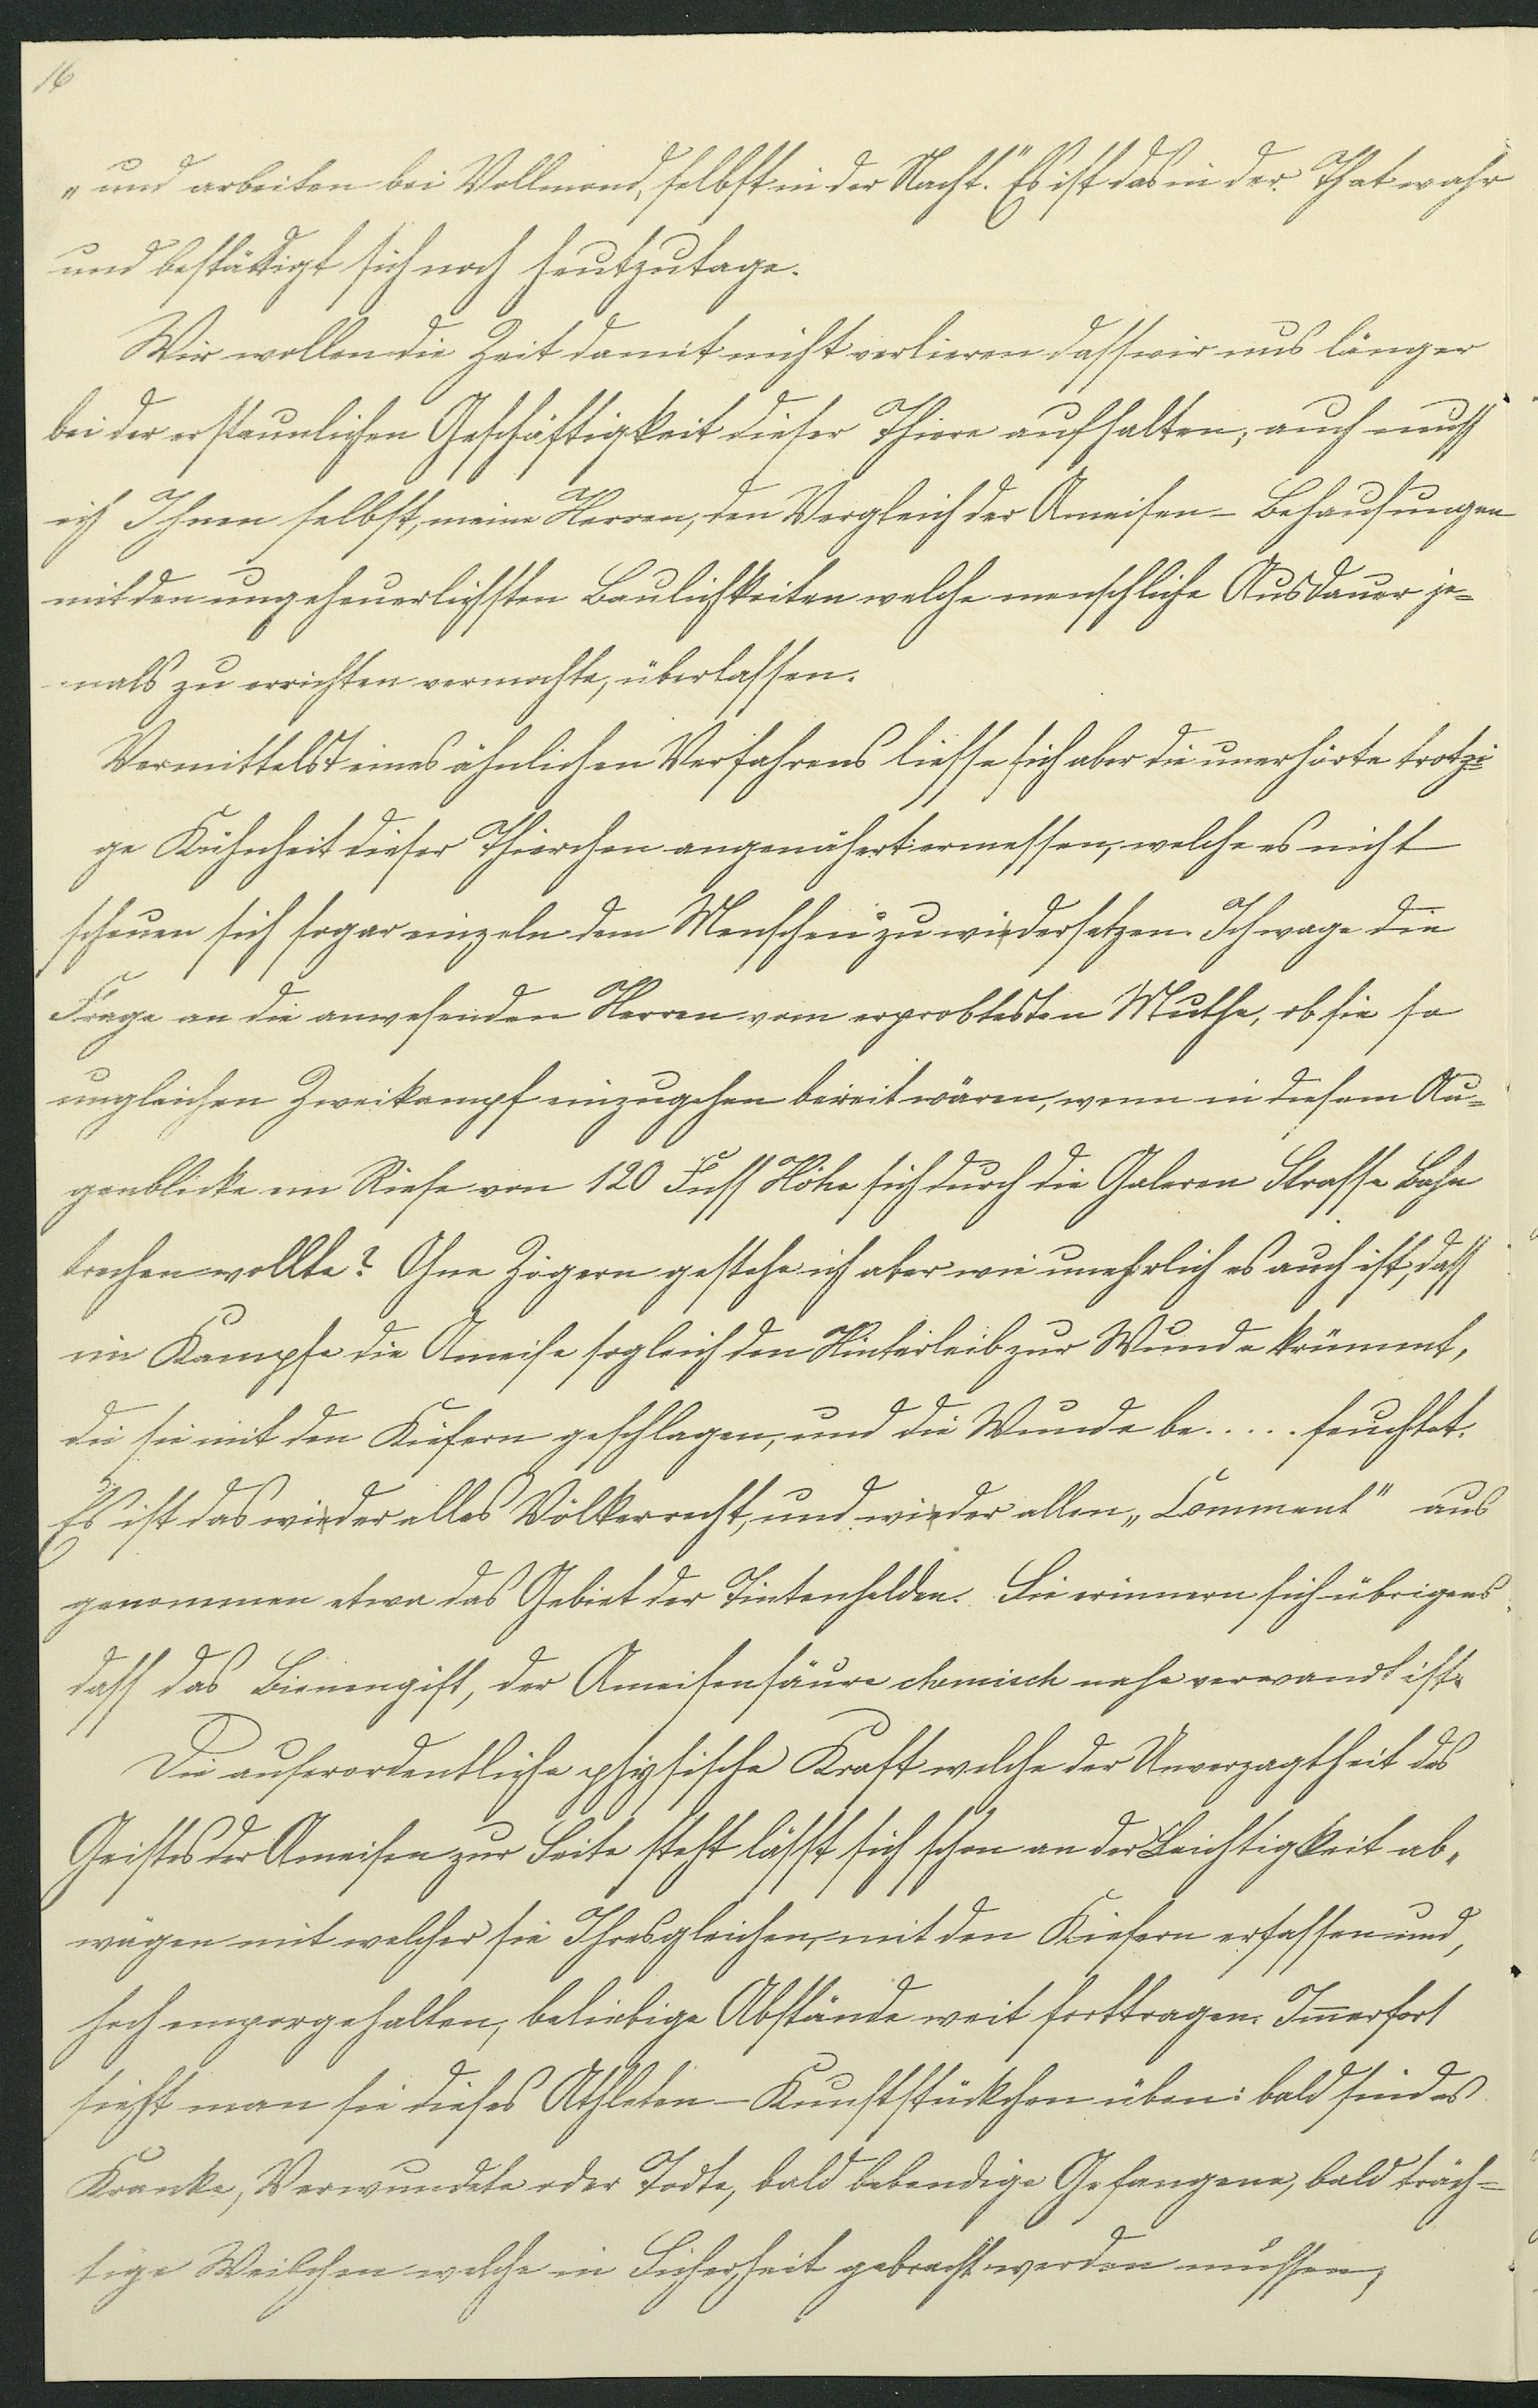 16
„und arbeiten bei Vollmond, selbst in der Nacht." Es ist das in der That wahr
und bestättigt sich noch heutzutage.
Wir wollen die Zeit damit nicht verlieren dass wir uns länger
bei der erstaunlichen Geschäftigkeit dieser Thiere aufhalten, auch muss
ich Ihnen selbst, meine Herren, den Vergleich der Ameisen-Behausungen
mit den ungeheuerlichsten Baulichkeiten welche menschliche Ausdauer je-
mals zu errichten vermochte, überlassen.
Vermittelst eines ähnlichen Verfahrens liesse sich aber die unerhörte trotzi-
ge Kühnheit dieser Thierchen angenähert ermessen, welche es nicht
scheuen sich sogar einzeln dem Menschen zu wiedersetzen. Ich wage die
Frage an die anwesenden Herren vom erprobtesten Muthe, ob sie so
ungleichen Zweikampf einzugehen bereit wären, wenn in diesem Au-
genblicke ein Riese von 120 Fuss Höhe sich durch die Galeren Strasse Bahn
brechen wollte? Ohne Zögern gestehe ich aber wie unehrlich es auch ist, dass
im Kampfe die Ameise sogleich den Hinterleib zur Wunde krümmt,
die sie mit den Kiefern geschlagen, und die Wunde be..... feuchtet.
Es ist das wieder alles Völkerrecht, und wieder allen „Comment" aus
genommen etwa das Gebiet der Tintenhelden. Sie erinnern sich übrigens
dass das Bienengift, der Ameisensäure chemisch nahe verwandt ist.
Die auserordentliche physische Kraft welche der Unverzagtheit des
Geistes der Ameisen zur Seite steht lässt sich schon an der Leichtigkeit ab-
wägen mit welcher sie Ihresgleichen, mit den Kiefern erfassen und,
hoch emporgehalten, beliebige Abstände weit forttragen. Im̅erfort
sieht man sie dieses Athleten-Kunststückchen üben: bald sind es
Kranke, Verwundete oder Todte, bald lebendige Gefangene, bald träch-
tige Weibchen welche in Sicherheit gebracht werden müssen,